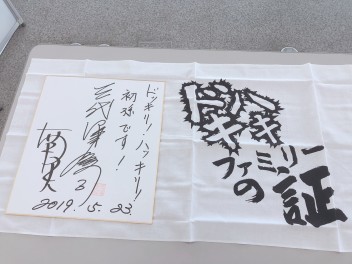 ドッキリ!ハッキリ!
初孫です!
三代澤康司
2019.5.23.
ドキハキ
ファミリー
の証